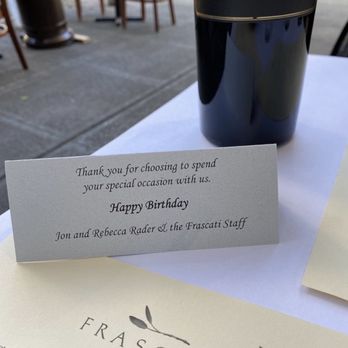 Thank you for choosing to spend
your special occasion with us.
Happy Birthday
Jon and Rebecca Rader & the Frascati Staff